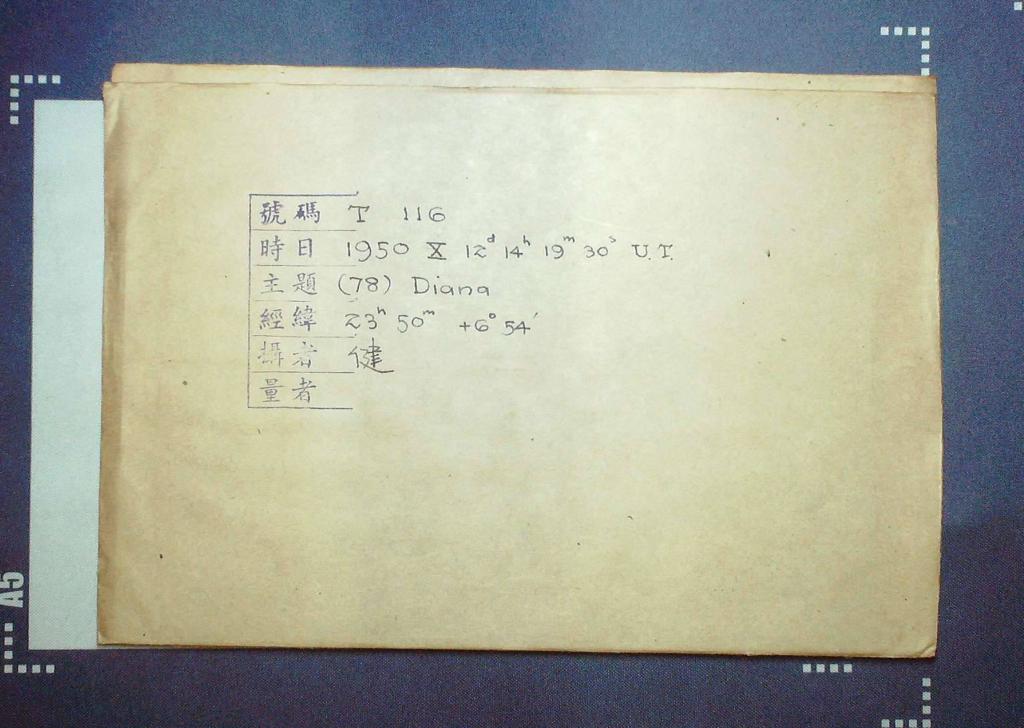 號碼 T 116
時日 1950 X 12ᵈ 14ʰ 19ᵐ 30ˢ U.T.
主題 (78) Diana
經緯 23ʰ 50ᵐ +6° 54′
攝者 健
量者
A5